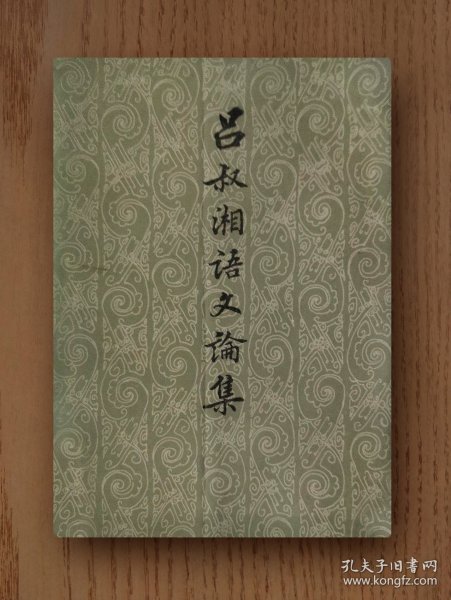 吕叔湘语文論集
孔夫子旧书网
www.kongfz.com